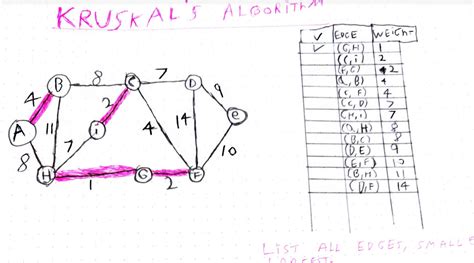 KRUSKAL'S ALGORITHM
✓ EDGE WEIGHT
✓ (G,H) 1
(C,i) 2
(F,G) 2
(A,B) 4
(C,F) 4
(C,D) 7
(H,i) 7
(A,H) 8
(B,C) 8
(D,E) 9
(E,F) 10
(B,H) 11
(D,F) 14
8 7
B C D
4 2 9
A 11 i 4 14 e
7
8 10
H G F
1 2
LIST ALL EDGES, SMALLE
LARGEST.